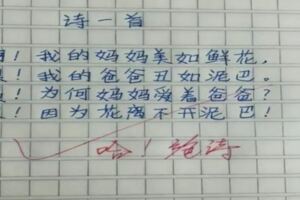 诗一首
！我的妈妈美如鲜花，
！我的爸爸丑如泥巴。
！为何妈妈爱着爸爸？
！因为花离不开泥巴！
哈！绝诗